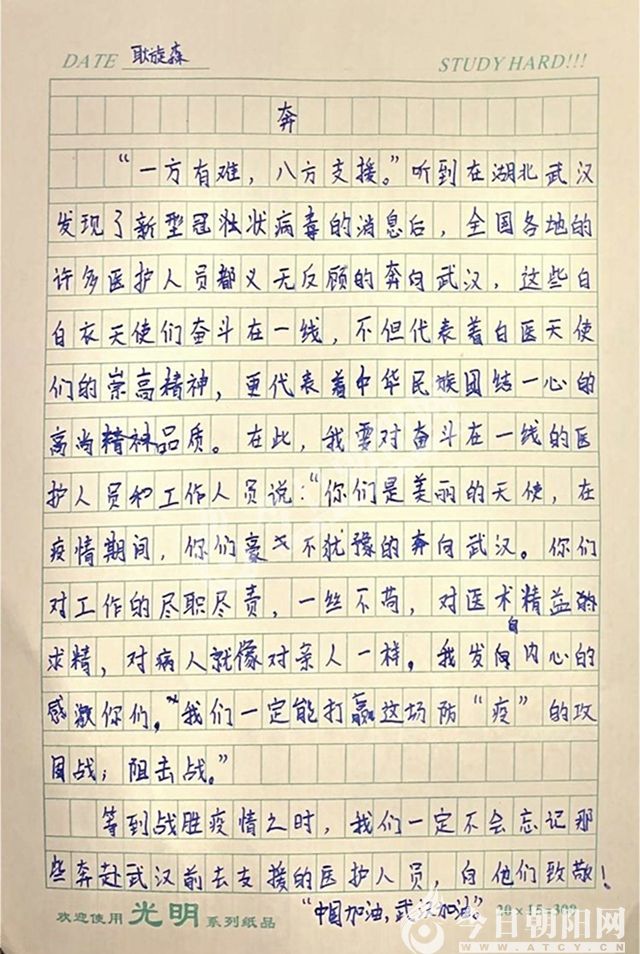 DATE 耿旋森
STUDY HARD!!!
奔
“一方有难，八方支援。”听到在湖北武汉
发现了新型冠壮状病毒的消息后，全国各地的
许多医护人员都义无反顾的奔向武汉，这些白
白衣天使们奋斗在一线，不但代表着白医天使
们的崇高精神，更代表着中华民族团结一心的
高尚精神品质。在此，我要对奋斗在一线的医
护人员和工作人员说：“你们是美丽的天使，在
疫情期间，你们豪不犹豫的奔向武汉。你们
对工作的尽职尽责，一丝不苟，对医术精益的
求精，对病人就像对亲人一样。我发自内心的
感激你们。”“我们一定能打赢这场防“疫”的攻
战，阻击战。”
等到战胜疫情之时，我们一定不会忘记那
些奔赴武汉前去支援的医护人员，向他们致敬！
“中国加油，武汉加油”
欢迎使用 光明 系列纸品
20×15=300
今日朝阳网
WWW.ATCY.CN